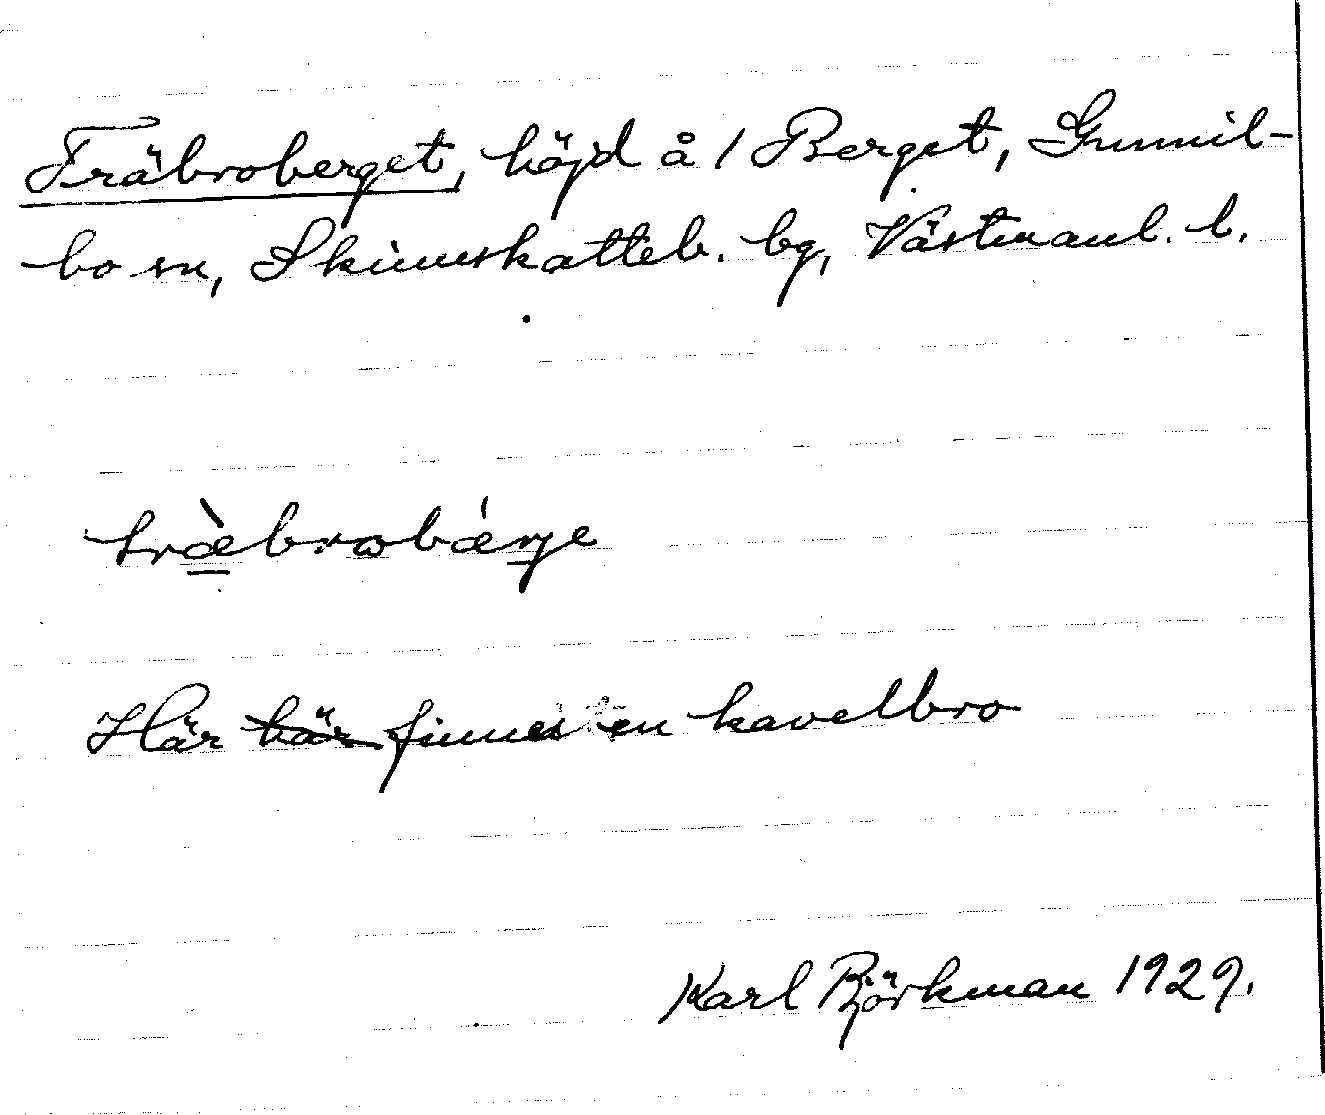 Träbroberget, höjd å 1 Berget, Gunnil-
bo sn, Skinnskatteb. bg, Västmanl. l.
træ̀brobǽrje
Här här finnes en kavelbro
Karl Björkman 1929.